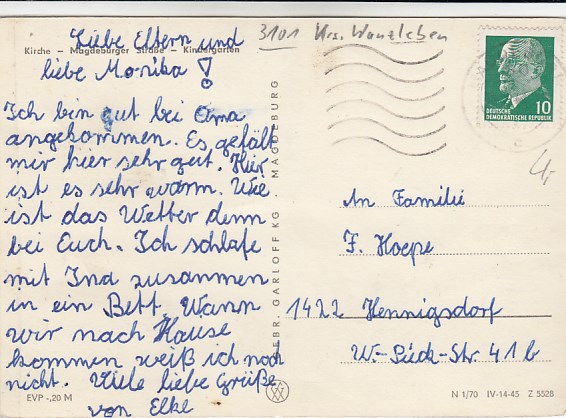 Kirche – Magdeburger Straße – Kindergarten
Liebe Eltern und
liebe Monika!
Ich bin gut bei Oma
angekommen. Es gefällt
mir hier sehr gut. Hier
ist es sehr warm. Wie
ist das Wetter denn
bei Euch. Ich schlafe
mit Ina zusammen
in ein Bett. Wann
wir nach Hause
kommen weiß ich noch
nicht. Viele liebe Grüße
von Elke
EVP -,20 M
GEBR. GARLOFF KG · MAGDEBURG
3101 Krs. Wanzleben
DEUTSCHE
DEMOKRATISCHE REPUBLIK
10
4,-
An Familie
F. Hoepe
1422 Hennigsdorf
W.-Pieck-Str 41b
N 1/70 IV-14-45 Z 5528